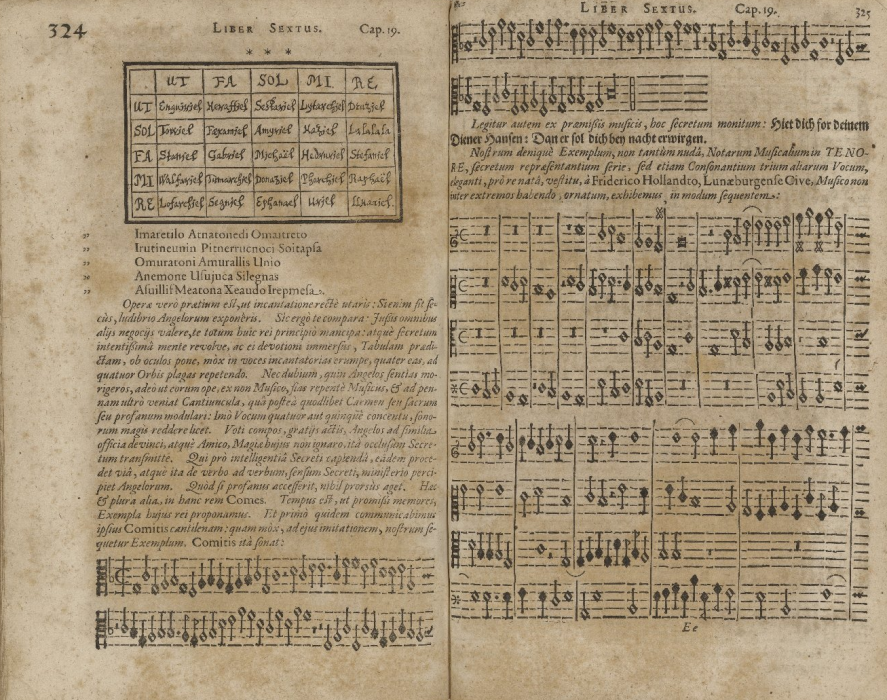 324 LIBER SEXTUS. Cap. 19.
* * *
UT FA SOL MI RE
UT Enguiviel Heraffiel Lytarchiel Draziel
SOL Toriel Amyriel Haziel Lalalala
FA Stansel Gabriel Michaël Stefaniel
MI Donaziel Raphaël
RE Lofarchiel Segniel Ephanael Uriel
„ Imaretilo Atnatonedi Omaitreto
„ Irutineunin Pitnerrucnoci Soitapsa
„ Omuratoni Amurallis Unio
„ Anemone Usujuca Silegnas
„ Asuillif Meatona Xeaudo Irepmesa.
Operæ verò prætium est, ut incantatione rectè utaris: Si enim sit se-
cùs, ludibrio Angelorum exponêris. Sic ergò te compara: Jussis omnibus
alijs negocijs valere, te totum huic rei principiò mancipa: atquè secretum
intentissimâ mente revolve, ac ei devotioni immersus, Tabulam prædi-
ctam, ob oculos pone, mòx in voces incantatorias erumpe, quater eas, ad
quatuor Orbis plagas repetendo. Nec dubium, quin Angelos sentias mo-
rigeros, adeò ut eorum ope, ex non Musico, fias repentè Musicus, & ad pen-
nam ultrò veniat Cantiuncula, quâ posteà quodlibet Carmen seu sacrum
seu profanum modulari: Imò Vocum quatuor aut quinquè concentu, sono-
rum magis reddere licet. Voti compos, gratijs actis, Angelos ad similia
officia devinci, atquè Amico, Magiæ hujus non ignaro, ità occlusum Secre-
tum transmitte. Qui prò intelligentiâ Secreti capiendâ, eâdem proce-
det viâ, atque ita de verbo ad verbum, sensum Secreti, ministeriò perci-
piet Angelorum. Quod si profanus accesserit, nihil prorsùs aget. Hæc
& plura alia, in hanc rem Comes. Tempus est, ut promissi memores,
Exempla hujus rei proponamus. Et primò quidem communicabimus
ipsius Comitis cantilenam: quam mòx, ad ejus imitationem, nostrum se-
quetur Exemplum. Comitis ità sonat:
LIBER SEXTUS. Cap. 19. 325
Legitur autem ex præmissis musicis, hoc secretum monitum: Hiet dich for deinem
Diener Hansen: Dan er sol dich bey nacht erwirgen.
Nostrum deniquè Exemplum, non tantùm nudâ, Notarum Musicalium in TENO-
RE, secretum repræsentantium serie, sed etiam Consonantiâ trium aliarum Vocum,
eleganti, prò re natâ, vestitu, à Friderico Hollandro, Lunæburgense Cive, Musico non
inter extremos habendo, ornatum, exhibemus, in modum sequentem:
Ee